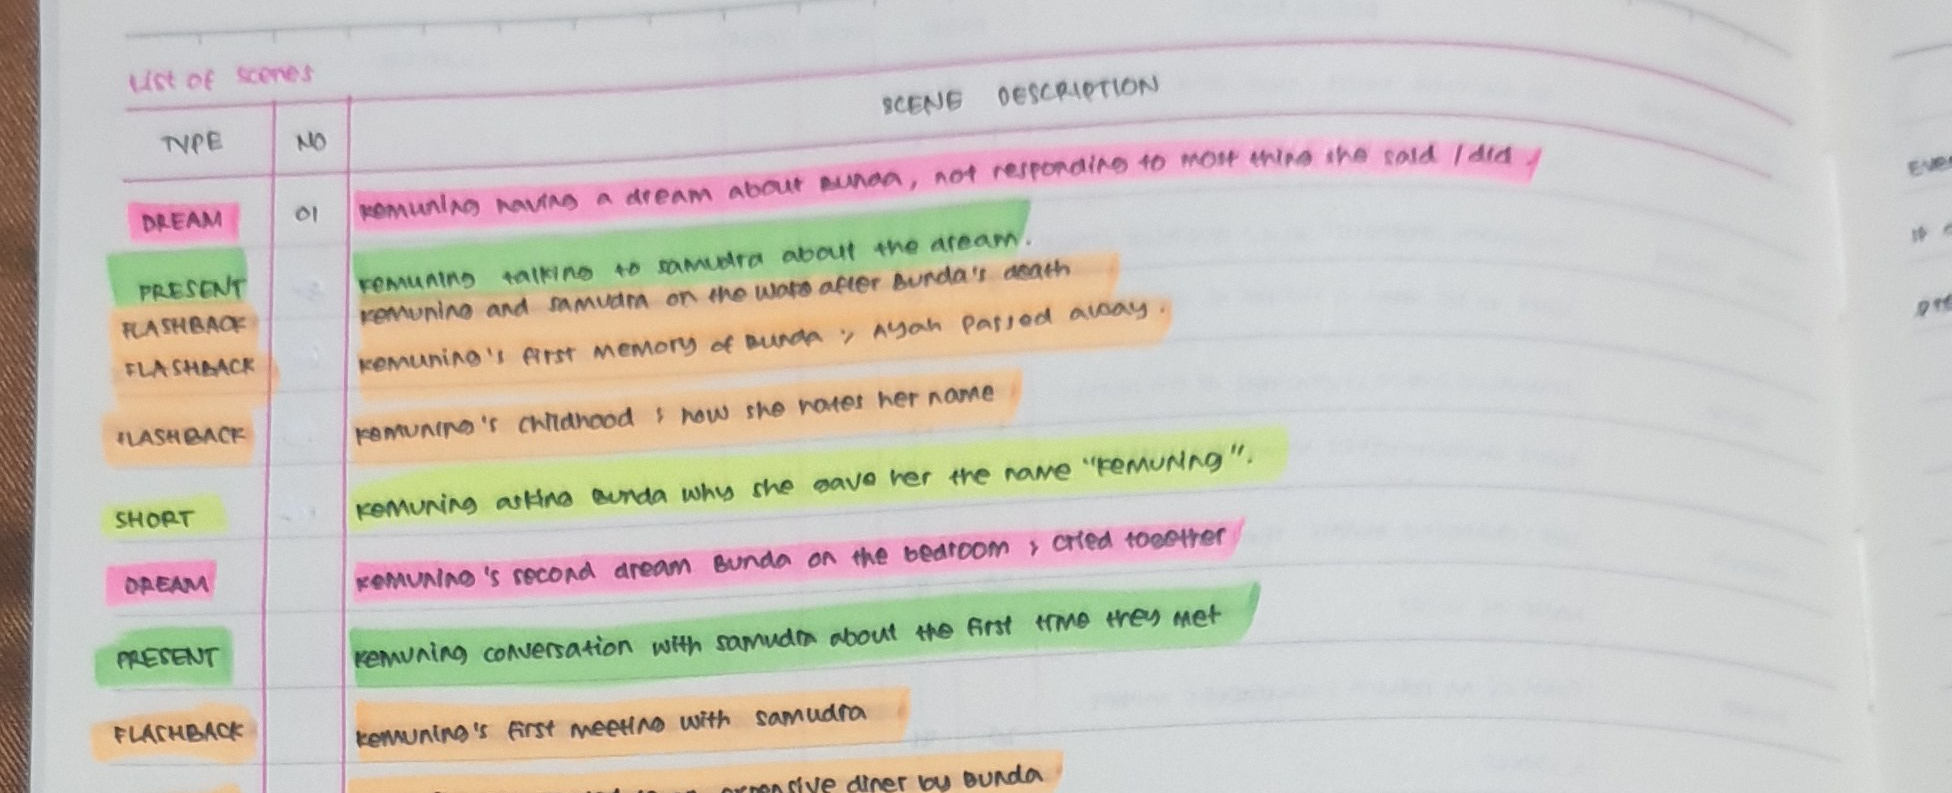 List of scenes
TYPE NO SCENE DESCRIPTION
DREAM 01 Kemuning having a dream about Bunda, not responding to most thing she said / did.
PRESENT Kemuning talking to Samudra about the dream.
FLASHBACK Kemuning and Samudra on the ware after Bunda's death
FLASHBACK Kemuning's first memory of Bunda ; Ayah passed away.
FLASHBACK Kemuning's childhood ; how she hates her name
SHORT Kemuning asking Bunda why she gave her the name "Kemuning".
DREAM Kemuning's second dream Bunda on the bedroom ; cried together
PRESENT Kemuning conversation with Samudra about the first time they met
FLASHBACK Kemuning's first meeting with Samudra
expensive diner by Bunda